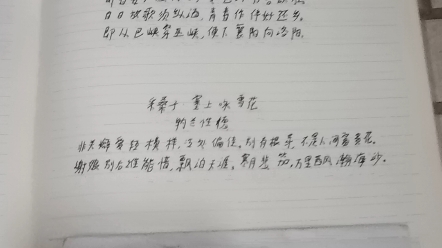 白日放歌须纵酒,青春作伴好还乡。
即从巴峡穿巫峡,便下襄阳向洛阳。
采桑子·塞上咏雪花
纳兰性德
非关癖爱轻模样,冷处偏佳。别有根芽,不是人间富贵花。
谢娘别后谁能惜,飘泊天涯。寒月悲笳,万里西风瀚海沙。